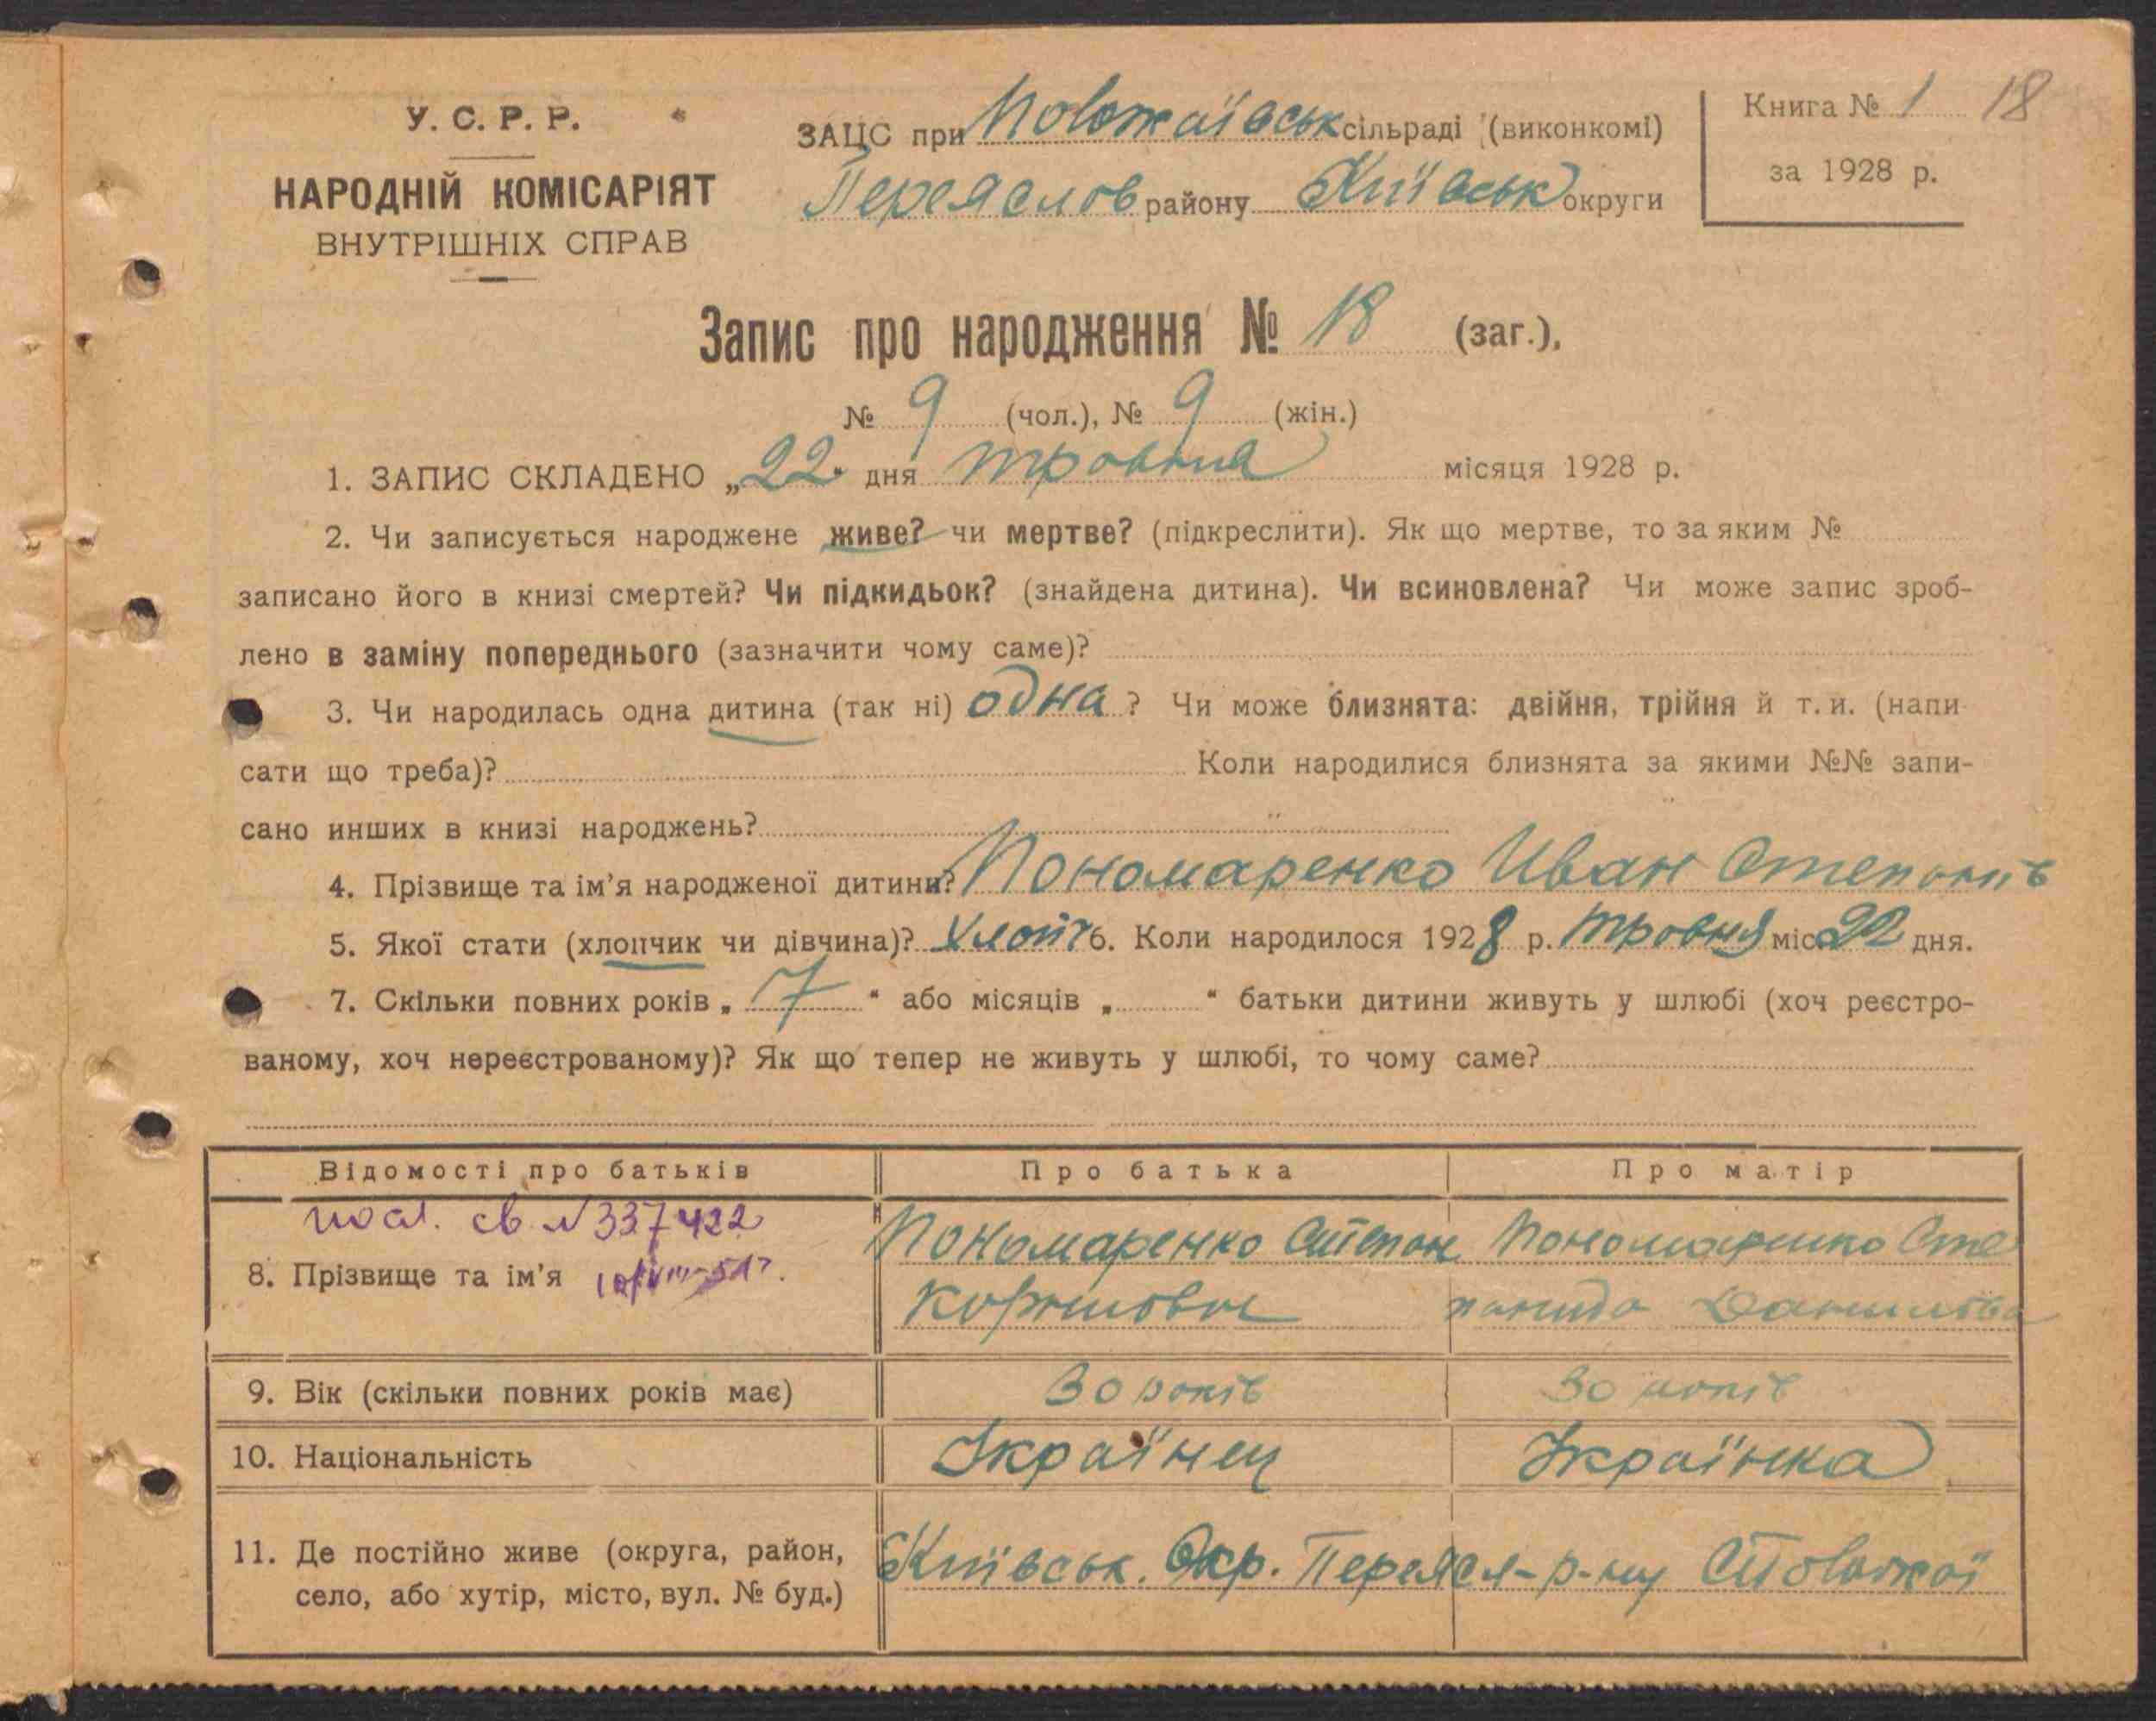 У. С. Р. Р.
НАРОДНІЙ КОМІСАРІЯТ
ВНУТРІШНІХ СПРАВ
ЗАЦС при Положаївськ сільраді (виконкомі)
Переяслов району Київськ округи
Книга № 1 18
за 1928 р.
Запис про народження № 18 (заг.),
№ 9 (чол.), № 9 (жін.)
1. ЗАПИС СКЛАДЕНО „22“ дня травня місяця 1928 р.
2. Чи записується народжене живе? чи мертве? (підкреслити). Як що мертве, то за яким №
записано його в книзі смертей? Чи підкидьок? (знайдена дитина). Чи всиновлена? Чи може запис зроб-
лено в заміну попереднього (зазначити чому саме)?
3. Чи народилась одна дитина (так ні) одна? Чи може близнята: двійня, трійня й т. и. (напи
сати що треба)? Коли народилися близнята за якими №№ запи-
сано инших в книзі народжень?
4. Прізвище та ім’я народженої дитини? Пономаренко Иван Степанів
5. Якої стати (хлопчик чи дівчина)? Хлопч 6. Коли народилося 1928 р. травня міс. 22 дня.
7. Скільки повних років „7“ або місяців „ “ батьки дитини живуть у шлюбі (хоч реєстро-
ваному, хоч нереєстрованому)? Як що тепер не живуть у шлюбі, то чому саме?
Відомості про батьків Про батька Про матір
св. № 337422
8. Прізвище та ім’я Пономаренко Степан Пономаренко Сте
панида Данилова
9. Вік (скільки повних років має) 30 років 30 років
10. Національність Українец Українка
11. Де постійно живе (округа, район,
село, або хутір, місто, вул. № буд.) Київськ. Окр. Переясл-р-ну